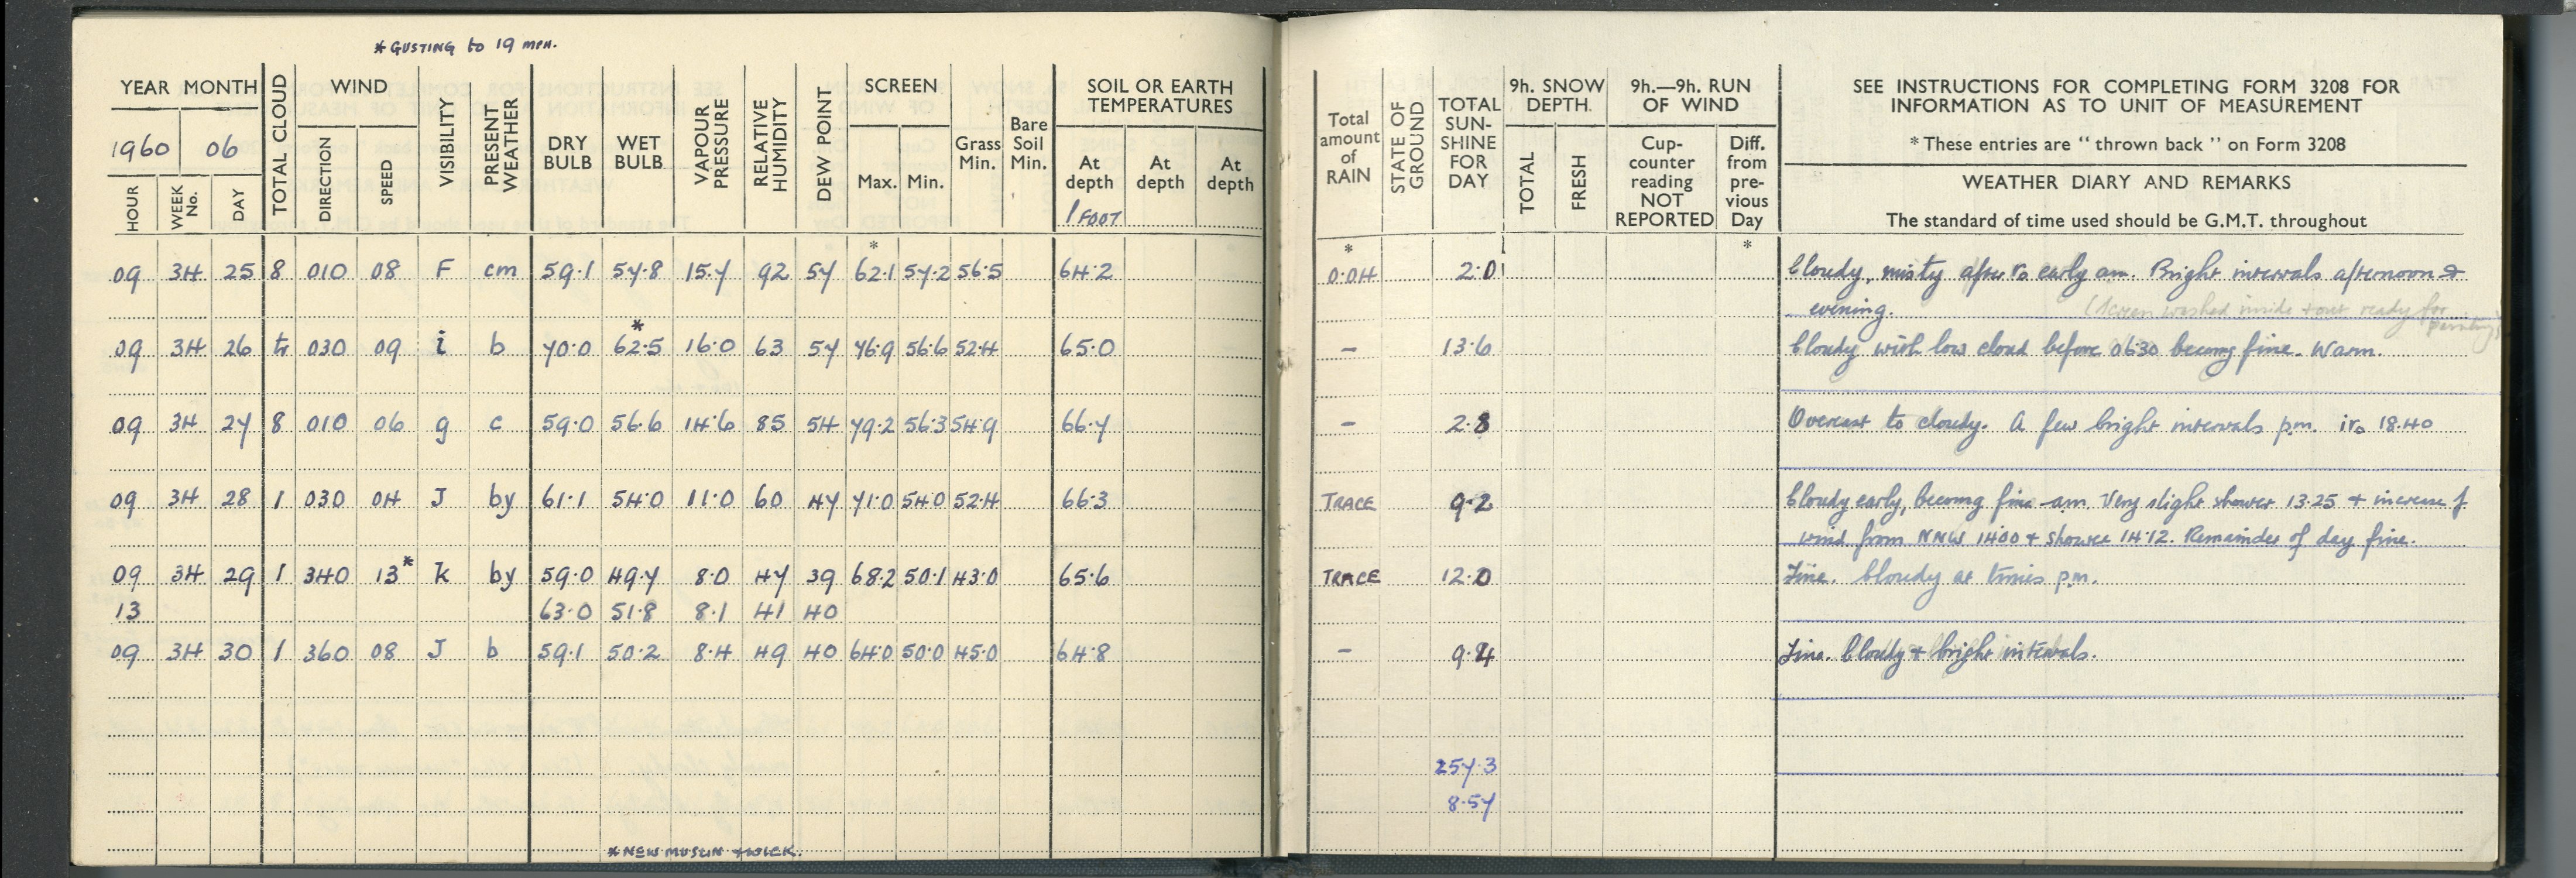 * GUSTING to 19 MPH.
YEAR MONTH
1960 06
HOUR
WEEK No.
DAY
TOTAL CLOUD
WIND
DIRECTION
SPEED
VISIBILITY
PRESENT WEATHER
DRY BULB
WET BULB
VAPOUR PRESSURE
RELATIVE HUMIDITY
DEW POINT
SCREEN
Max. Min.
Grass Min.
Bare Soil Min.
SOIL OR EARTH
TEMPERATURES
At depth 1 FOOT
At depth
At depth
Total amount of RAIN
STATE OF GROUND
TOTAL SUN-SHINE FOR DAY
9h. SNOW DEPTH.
TOTAL
FRESH
9h.—9h. RUN OF WIND
Cup-counter reading NOT REPORTED
Diff. from pre-vious Day
SEE INSTRUCTIONS FOR COMPLETING FORM 3208 FOR
INFORMATION AS TO UNIT OF MEASUREMENT
* These entries are "thrown back" on Form 3208
WEATHER DIARY AND REMARKS
The standard of time used should be G.M.T. throughout
* * *
09 34 25 8 010 08 F cm 59.1 57.8 15.7 92 57 62.1 57.2 56.5 64.2 0.04 2.0 Cloudy, misty after ro early am. Bright intervals afternoon &
evening. (Screen washed inside + out ready for painting)
*
09 34 26 tr 030 09 i b 70.0 62.5 16.0 63 57 76.9 56.6 52.4 65.0 — 13.6 Cloudy with low cloud before 0630 becomg fine. Warm.
09 34 27 8 010 06 g c 59.0 56.6 14.6 85 54 79.2 56.3 54.9 66.7 — 2.8 Overcast to cloudy. A few bright intervals p.m. iro 18.40
09 34 28 1 030 04 J by 61.1 54.0 11.0 60 47 71.0 54.0 52.4 66.3 TRACE 9.2 Cloudy early, becomg fine am. Very slight shower 13.25 + increase of
wind from NNW 1400 + shower 14.12. Remainder of day fine.
09 34 29 1 340 13* k by 59.0 49.7 8.0 47 39 68.2 50.1 43.0 65.6 TRACE 12.0 Fine. Cloudy at times p.m.
13 63.0 51.8 8.1 41 40
09 34 30 1 360 08 J b 59.1 50.2 8.4 49 40 64.0 50.0 45.0 64.8 — 9.4 Fine. Cloudy + bright intervals.
257.3
8.57
* NEW MUSLIN + WICK.